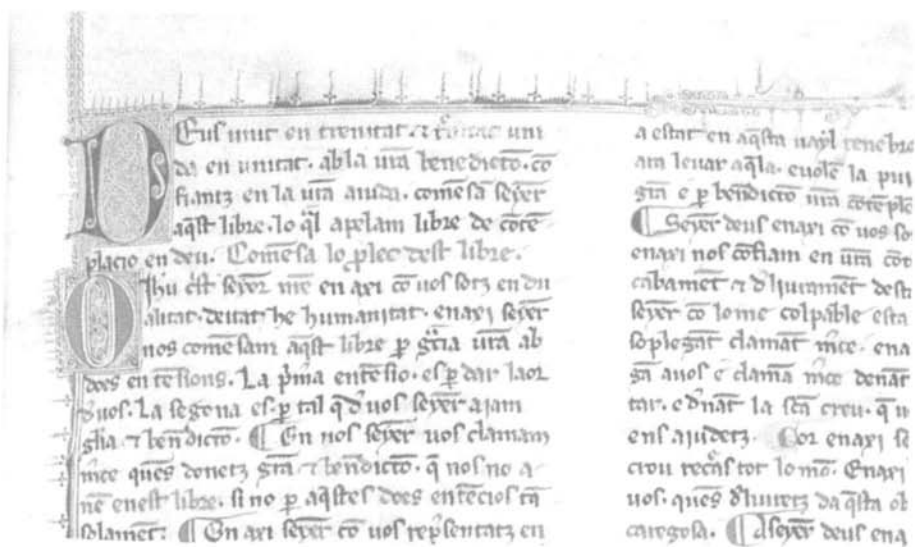 Deus uiuit en trenitat ⁊ t̃nitat uni
da en unitat. ab la ura̅ benedicto̅. co̅
fiantz en la ura̅ aiuda. come̅sa̅ seẏer
aq̅st libre. lo q̅l apelam libre de co̅te̅
placio en deu. Come̅sa lo p̱lec dest libre.
O Jhu c̅st seẏor me̅ en axi co̅ uos sotz en du
alitat. deitat he humanitat. enaxi seẏer
nos come̅sam aq̅st libre p̱ gr̅a ura̅ ab
does ente̅sions. La p̃ma ente̅sio. es p̱ dar laor
d̓uos. La segona es. p̱ tal q̅ d̓ uos seẏer aiam
gl̅ia ⁊ ben̅dicto̅. ¶ En nos seẏer uos clamam
m̅ce ques donetz gr̅a ⁊ ben̅dicto̅. q̅ nos no a
ne̅ enest libre. si no p̱ aq̅stes does ente̅cios ta̅
solame̅t. ¶ En axi seẏer co̅ uos rep̃sentatz en
a estat en aq̅sta
am leuar aq̅la. euole̅ la pui
gr̅a e p̱ ben̅dicto ura̅ co̅te̅ple
¶ Seẏer deus enaxi co̅ uos so
enaxi nos co̅fiam en ura̅ co̅t
cabame̅t ⁊ d̓liurame̅t desta
seẏer co̅ lome colpable esta
soplega̅t clama̅t m̅ce. ena
sa̅ auos e clama̅ m̅ce dena̅t
tar. e d̓na̅t la sc̅a creu. q̅ n
ens aiudetz. Cor enaxi se
creu rece̅s tot lo mo̅. Enaxi
uos. ques d̓liuretz da q̅sta ob
caregosa. ¶ A seẏer deus ena